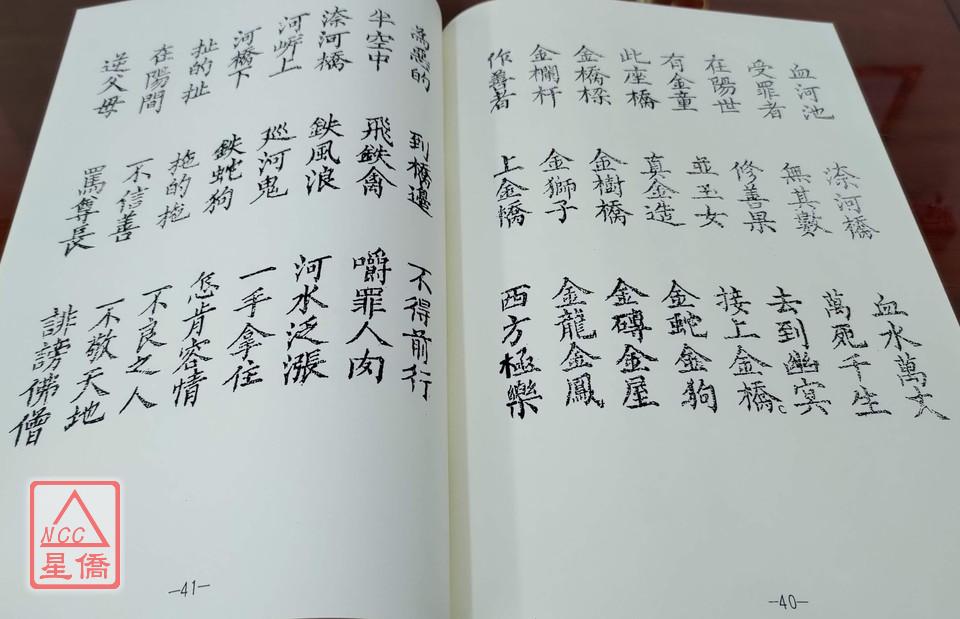 血河池 渿河橋 血水萬丈
受罪者 無其數 萬死千生
在陽世 修善果 去到幽冥
有金童 並玉女 接上金橋。
此座橋 真金造 金蛇金狗
金橋梁 金樹橋 金磚金屋
金欄杆 金獅子 金龍金鳳
作善者 上金橋 西方極樂
—40—
為惡的 到橋邊 不得前行
半空中 飛鉄禽 嚼罪人肉
渿河橋 鉄風浪 河水泛漲
河岸上 巡河鬼 一手拿住
河橋下 鉄蛇狗 怎肯容情
扯的扯 拖的拖 不良之人
在陽間 不信善 不敬天地
逆父母 罵尊長 誹謗佛僧
—41—
NCC
星僑